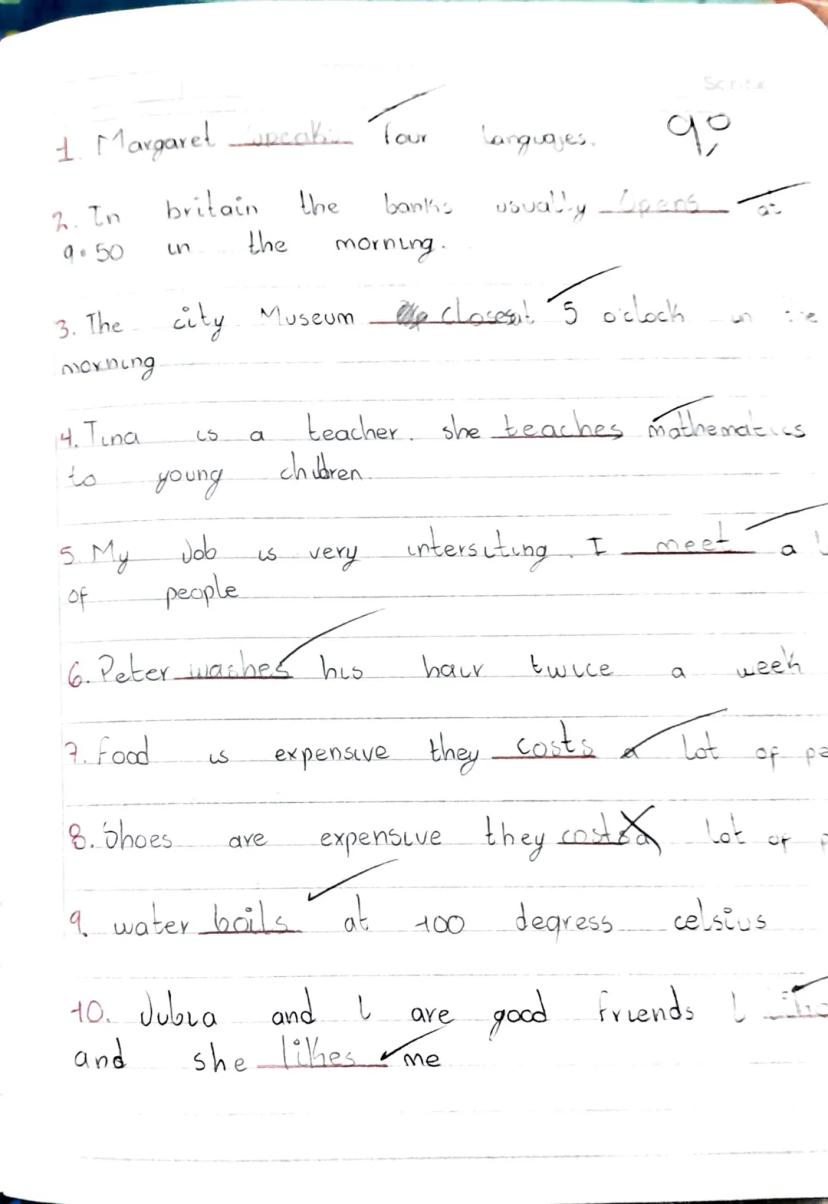 Scribe
1. Margaret speaks four languages. 9,0
2. In britain the banks usually opens at
9.50 in the morning.
3. The city Museum closes at 5 o'clock in the
morning
4. Tina is a teacher. she teaches mathematics
to young children
5. My Job is very intersiting. I meet a
of people
6. Peter waches his hair twice a week
7. Food is expensive they costs a lot of
8. Shoes are expensive they costs a lot of
9. water boils at 100 degress celsius
10. Jubia and I are good friends I
and she likes me